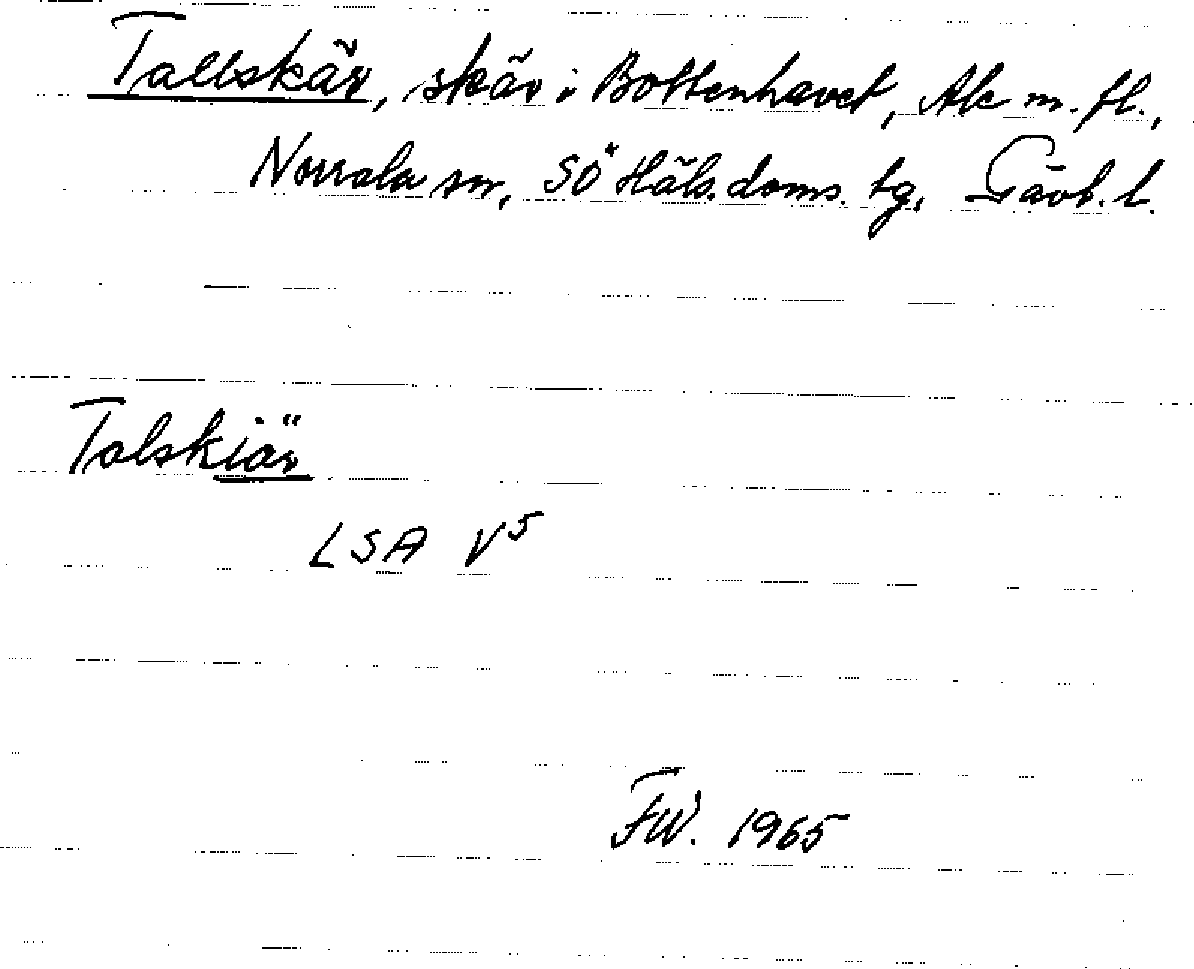 Tallskär, skär i Bottenhavet, Ale m. fl.,
Norrala sn, SÖ Häls. doms. tg. Gävl. l.
Talskiär
LSA V5
FW. 1965